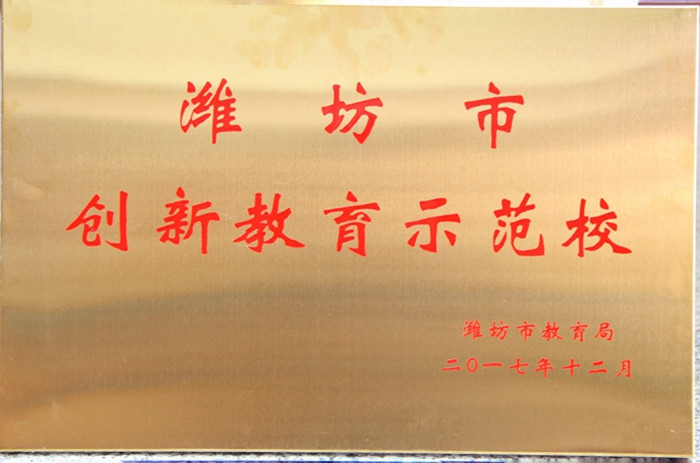 潍坊市
创新教育示范校
潍坊市教育局
二〇一七年十二月